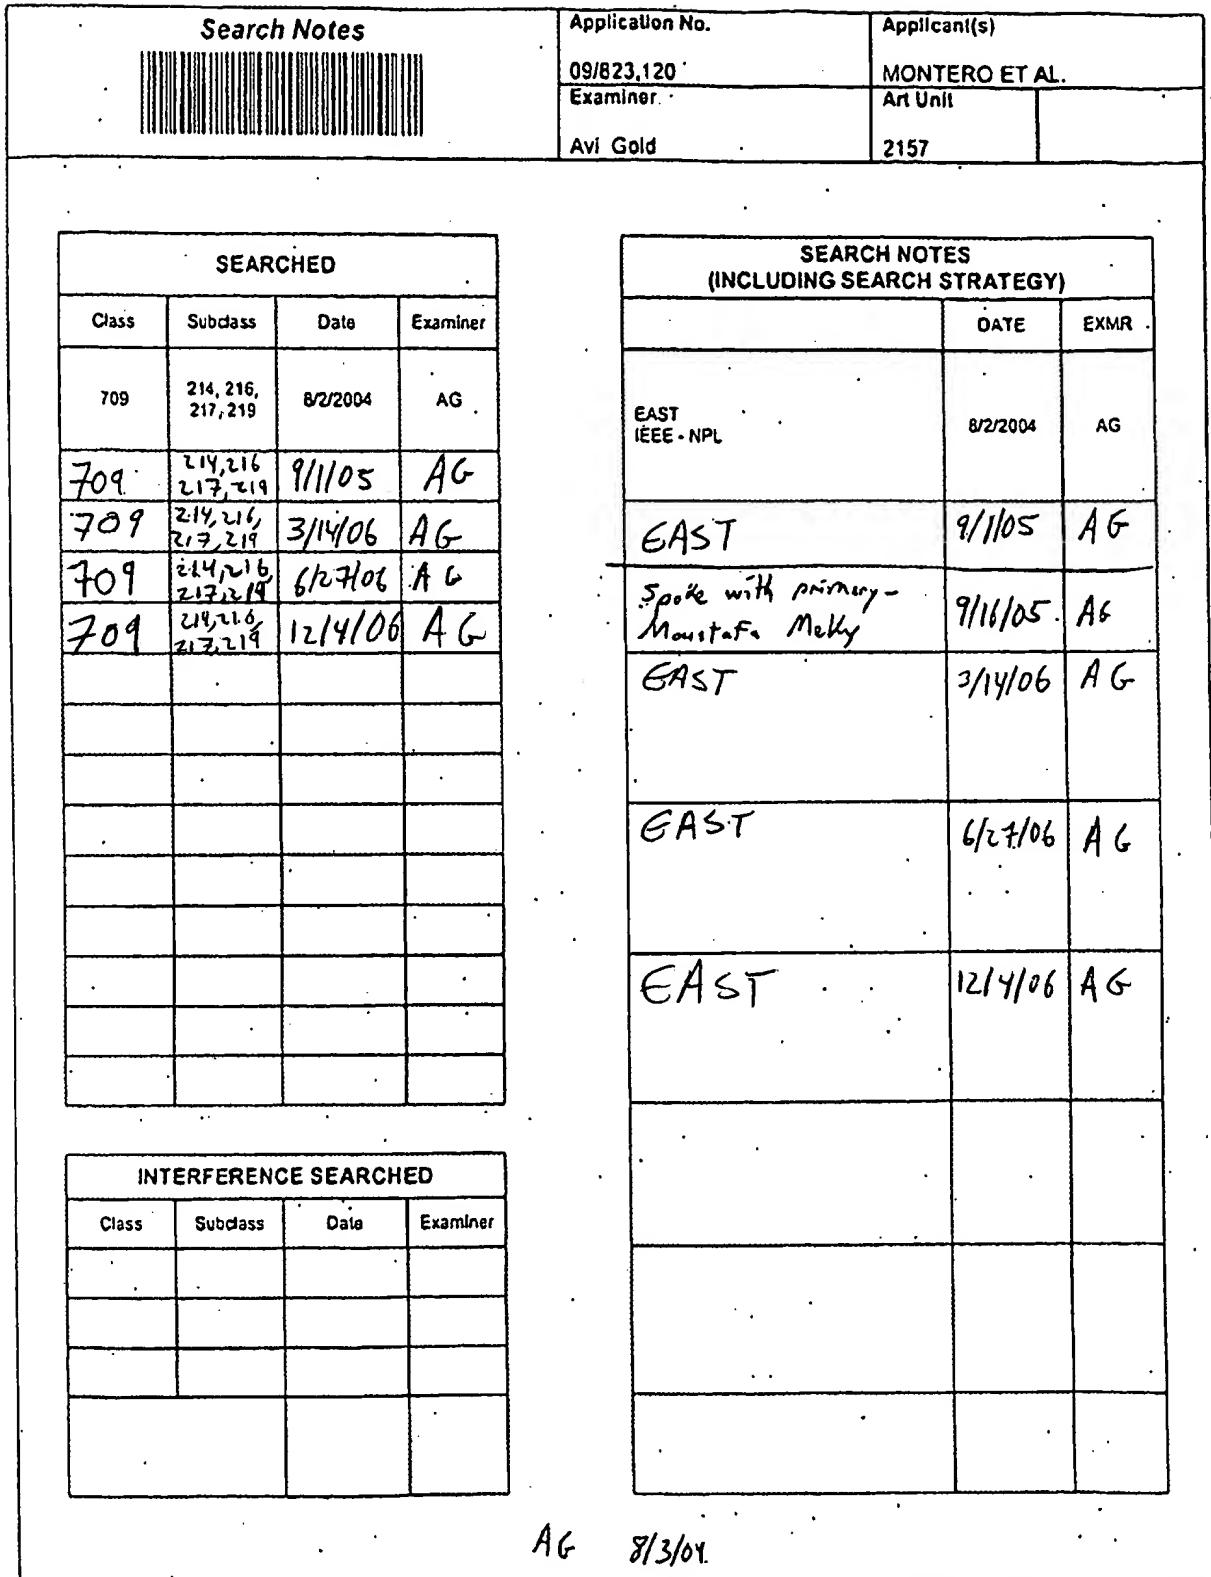 Search Notes
Application No.
09/823,120
Applicant(s)
MONTERO ET AL.
Examiner
Avi Gold
Art Unit
2157
SEARCHED
Class Subclass Date Examiner
709 214, 216, 217, 219 8/2/2004 AG
709 214,216 217,219 9/1/05 AG
709 214,216, 217,219 3/14/06 AG
709 214,216, 217,219 6/27/06 AG
709 214,216, 217,219 12/4/06 AG
INTERFERENCE SEARCHED
Class Subclass Date Examiner
SEARCH NOTES
(INCLUDING SEARCH STRATEGY)
DATE EXMR
EAST
IEEE - NPL 8/2/2004 AG
EAST 9/1/05 AG
Spoke with primary-
Moustafa Meky 9/16/05 AG
EAST 3/14/06 AG
EAST 6/27/06 AG
EAST 12/4/06 AG
AG 8/3/04